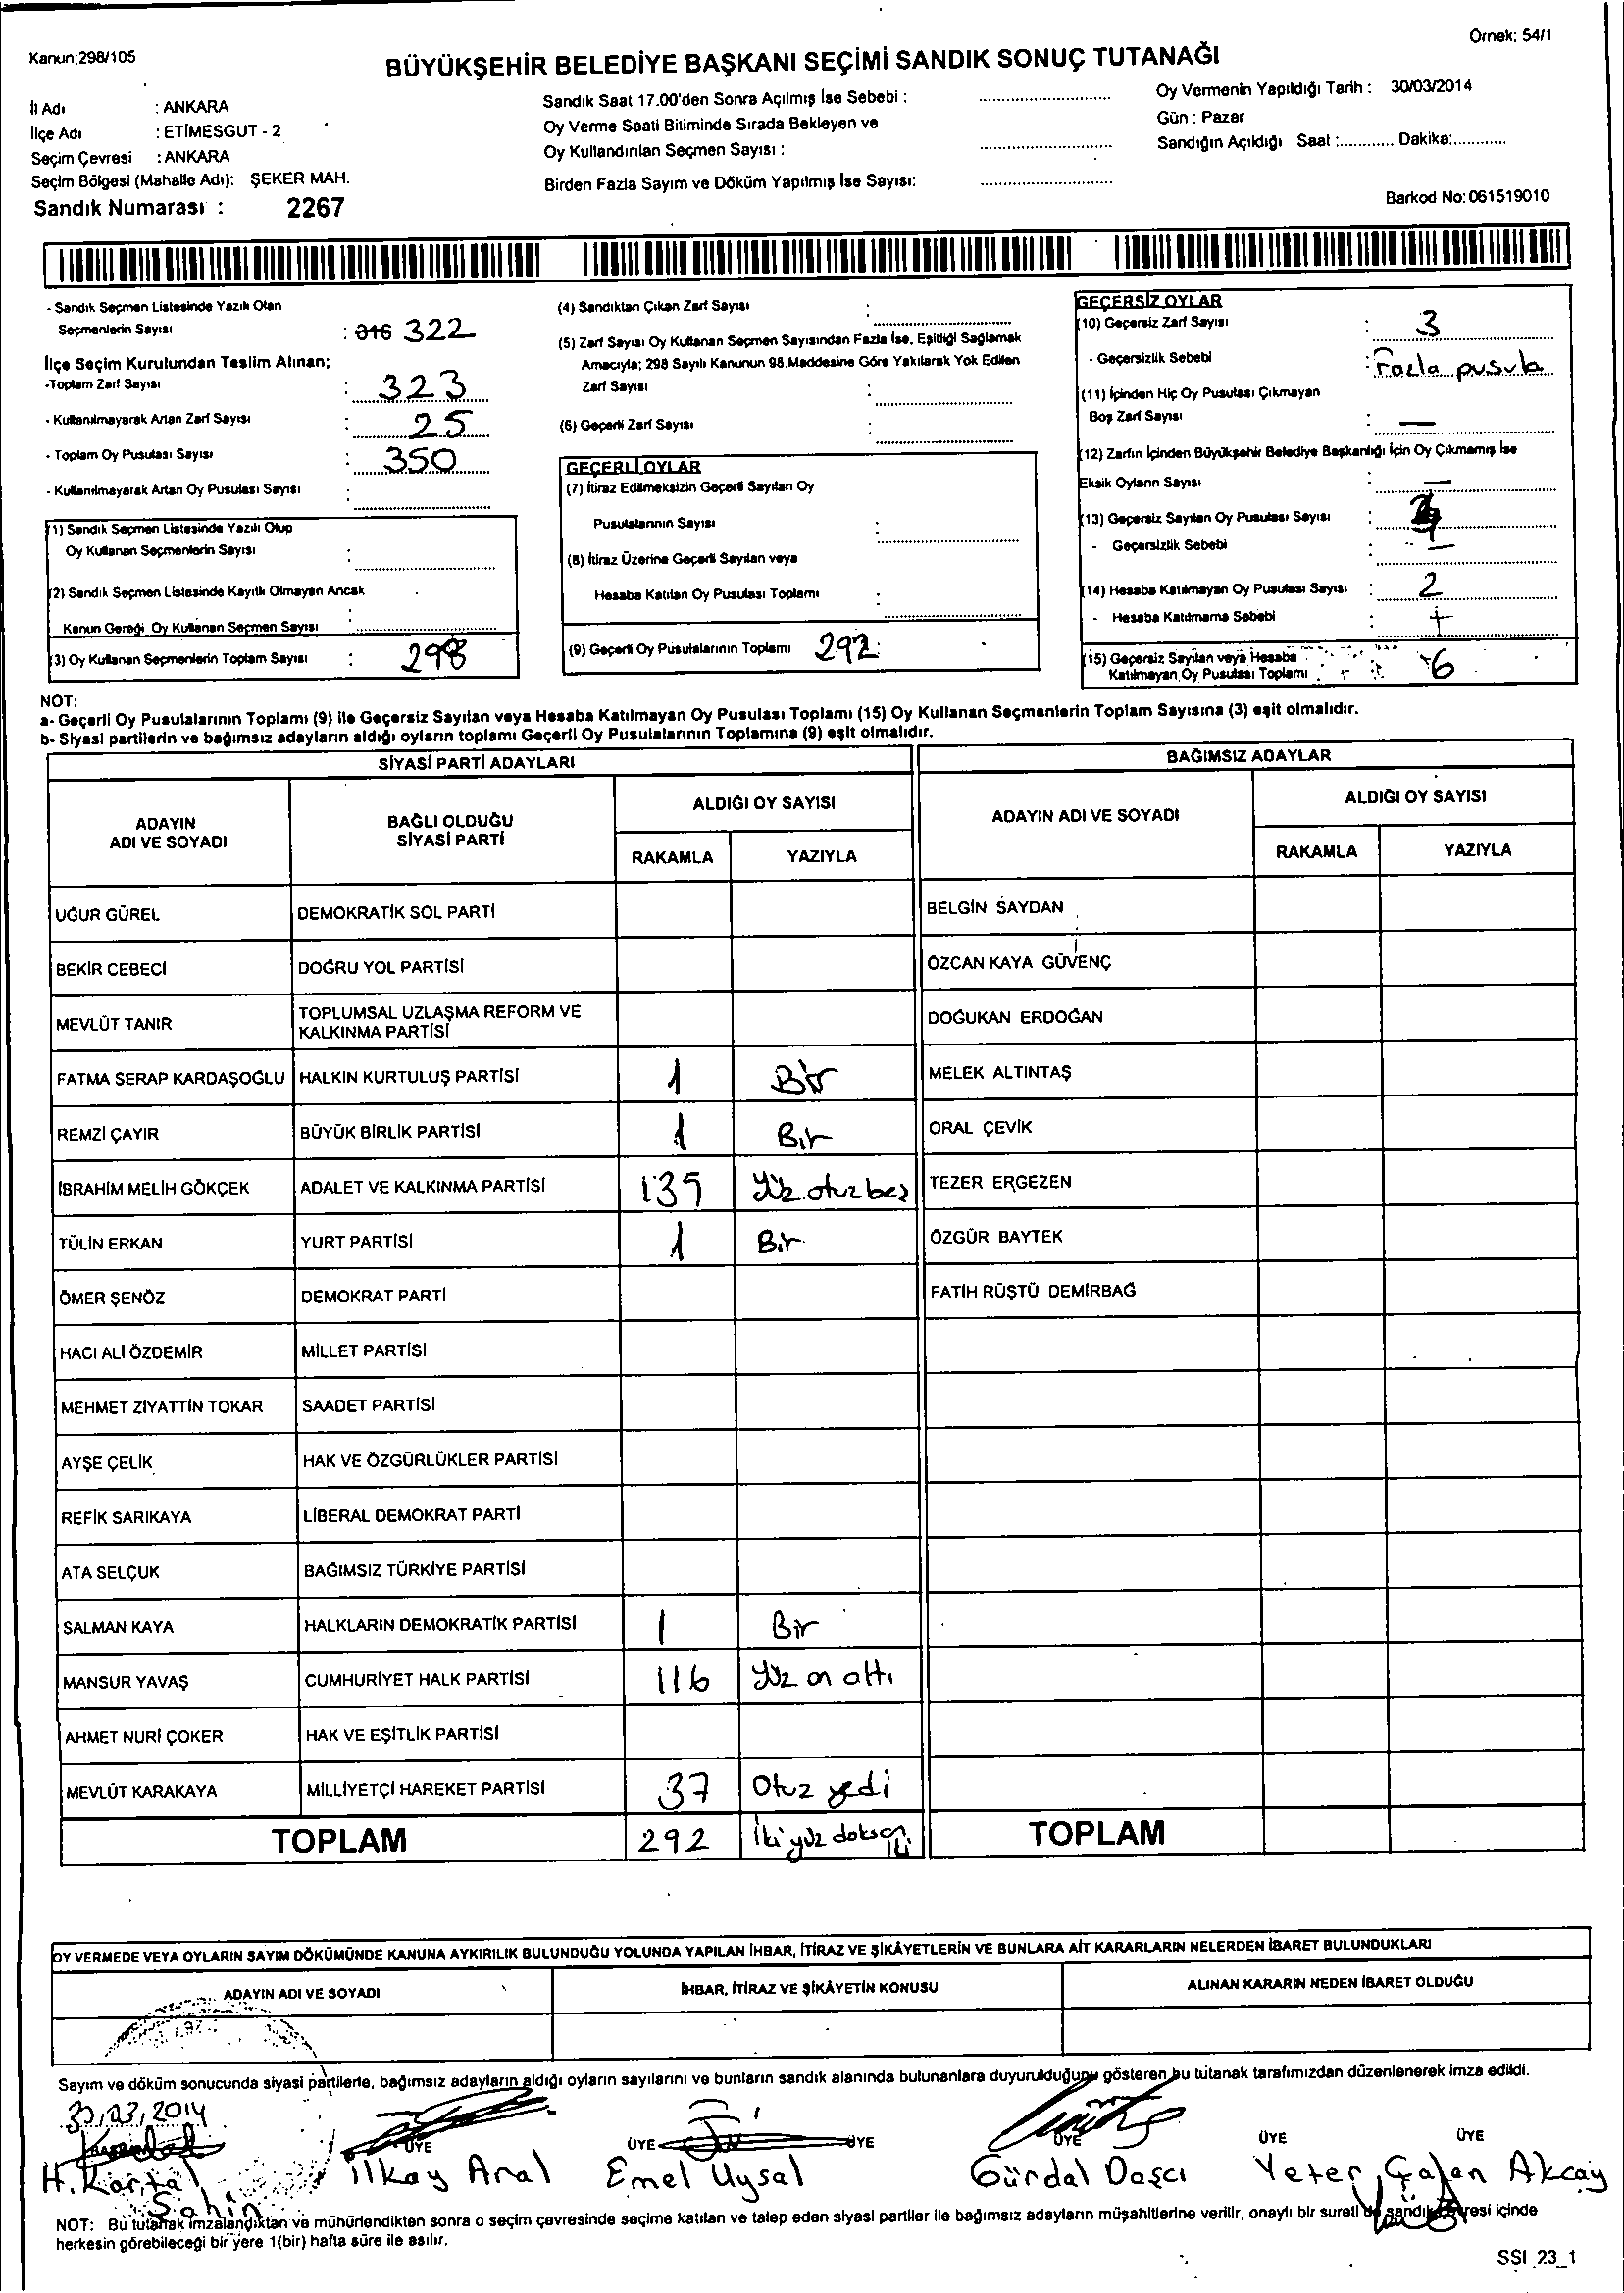 Kanun:298/105
Örnek: 54/1
BÜYÜKŞEHİR BELEDİYE BAŞKANI SEÇİMİ SANDIK SONUÇ TUTANAĞI
İl Adı : ANKARA
İlçe Adı : ETİMESGUT - 2
Seçim Çevresi : ANKARA
Seçim Bölgesi (Mahalle Adı): ŞEKER MAH.
Sandık Numarası : 2267
Sandık Saat 17.00'den Sonra Açılmış İse Sebebi :
Oy Verme Saati Bitiminde Sırada Bekleyen ve
Oy Kullandırılan Seçmen Sayısı :
Birden Fazla Sayım ve Döküm Yapılmış İse Sayısı:
Oy Vermenin Yapıldığı Tarih : 30/03/2014
Gün : Pazar
Sandığın Açıldığı Saat :............ Dakika:............
Barkod No: 061519010
- Sandık Seçmen Listesinde Yazılı Olan
Seçmenlerin Sayısı : 316 322
İlçe Seçim Kurulundan Teslim Alınan;
-Toplam Zarf Sayısı : 323
- Kullanılmayarak Artan Zarf Sayısı : 25
- Toplam Oy Pusulası Sayısı : 350
- Kullanılmayarak Artan Oy Pusulası Sayısı :
(1) Sandık Seçmen Listesinde Yazılı Olup
Oy Kullanan Seçmenlerin Sayısı :
(2) Sandık Seçmen Listesinde Kayıtlı Olmayan Ancak
Kanun Gereği Oy Kullanan Seçmen Sayısı :
(3) Oy Kullanan Seçmenlerin Toplam Sayısı : 298
(4) Sandıktan Çıkan Zarf Sayısı :
(5) Zarf Sayısı Oy Kullanan Seçmen Sayısından Fazla İse, Eşitliği Sağlamak
Amacıyla; 298 Sayılı Kanunun 98.Maddesine Göre Yakılarak Yok Edilen
Zarf Sayısı :
(6) Geçerli Zarf Sayısı :
GEÇERLİ OYLAR
(7) İtiraz Edilmeksizin Geçerli Sayılan Oy
Pusulalarının Sayısı :
(8) İtiraz Üzerine Geçerli Sayılan veya
Hesaba Katılan Oy Pusulası Toplamı :
(9) Geçerli Oy Pusulalarının Toplamı 292 :
GEÇERSİZ OYLAR
(10) Geçersiz Zarf Sayısı : 3
- Geçersizlik Sebebi : Fazla pusula
(11) İçinden Hiç Oy Pusulası Çıkmayan
Boş Zarf Sayısı : —
(12) Zarfın İçinden Büyükşehir Belediye Başkanlığı İçin Oy Çıkmamış İse
Eksik Oyların Sayısı : —
(13) Geçersiz Sayılan Oy Pusulası Sayısı :
- Geçersizlik Sebebi : —
(14) Hesaba Katılmayan Oy Pusulası Sayısı : 2
- Hesaba Katılmama Sebebi :
(15) Geçersiz Sayılan veya Hesaba
Katılmayan Oy Pusulası Toplamı : 6
NOT:
a- Geçerli Oy Pusulalarının Toplamı (9) ile Geçersiz Sayılan veya Hesaba Katılmayan Oy Pusulası Toplamı (15) Oy Kullanan Seçmenlerin Toplam Sayısına (3) eşit olmalıdır.
b- Siyasi partilerin ve bağımsız adayların aldığı oyların toplamı Geçerli Oy Pusulalarının Toplamına (9) eşit olmalıdır.
SİYASİ PARTİ ADAYLARI
BAĞIMSIZ ADAYLAR
ADAYIN ADI VE SOYADI
BAĞLI OLDUĞU SİYASİ PARTİ
ALDIĞI OY SAYISI
RAKAMLA YAZIYLA
ADAYIN ADI VE SOYADI
ALDIĞI OY SAYISI
RAKAMLA YAZIYLA
UĞUR GÜREL DEMOKRATİK SOL PARTİ BELGİN SAYDAN
BEKİR CEBECİ DOĞRU YOL PARTİSİ ÖZCAN KAYA GÜVENÇ
MEVLÜT TANIR TOPLUMSAL UZLAŞMA REFORM VE KALKINMA PARTİSİ DOĞUKAN ERDOĞAN
FATMA SERAP KARDAŞOĞLU HALKIN KURTULUŞ PARTİSİ 1 Bir MELEK ALTINTAŞ
REMZİ ÇAYIR BÜYÜK BİRLİK PARTİSİ 1 Bir ORAL ÇEVİK
İBRAHİM MELİH GÖKÇEK ADALET VE KALKINMA PARTİSİ 135 Yüz otuz beş TEZER ERGEZEN
TÜLİN ERKAN YURT PARTİSİ 1 Bir ÖZGÜR BAYTEK
ÖMER ŞENÖZ DEMOKRAT PARTİ FATİH RÜŞTÜ DEMİRBAĞ
HACI ALİ ÖZDEMİR MİLLET PARTİSİ
MEHMET ZİYATTİN TOKAR SAADET PARTİSİ
AYŞE ÇELİK HAK VE ÖZGÜRLÜKLER PARTİSİ
REFİK SARIKAYA LİBERAL DEMOKRAT PARTİ
ATA SELÇUK BAĞIMSIZ TÜRKİYE PARTİSİ
SALMAN KAYA HALKLARIN DEMOKRATİK PARTİSİ 1 Bir
MANSUR YAVAŞ CUMHURİYET HALK PARTİSİ 116 Yüz on altı
AHMET NURİ ÇOKER HAK VE EŞİTLİK PARTİSİ
MEVLÜT KARAKAYA MİLLİYETÇİ HAREKET PARTİSİ 37 Otuz yedi
TOPLAM 292 İki yüz doksan iki TOPLAM
OY VERMEDE VEYA OYLARIN SAYIM DÖKÜMÜNDE KANUNA AYKIRILIK BULUNDUĞU YOLUNDA YAPILAN İHBAR, İTİRAZ VE ŞİKÂYETLERİN VE BUNLARA AİT KARARLARIN NELERDEN İBARET BULUNDUKLARI
ADAYIN ADI VE SOYADI İHBAR, İTİRAZ VE ŞİKÂYETİN KONUSU ALINAN KARARIN NEDEN İBARET OLDUĞU
Sayım ve döküm sonucunda siyasi partilerle, bağımsız adayların aldığı oyların sayılarını ve bunların sandık alanında bulunanlara duyurulduğunu gösteren bu tutanak tarafımızdan düzenlenerek imza edildi.
30/03/2014
BAŞKAN ÜYE ÜYE ÜYE ÜYE ÜYE ÜYE
H. Kartal Şahin İlkay Anal Emel Uysal Gürdal Daşcı Yeter Çalen Akcay
NOT: Bu tutanak imzalandıktan ve mühürlendikten sonra o seçim çevresinde seçime katılan ve talep eden siyasi partiler ile bağımsız adayların müşahitlerine verilir, onaylı bir sureti de sandık çevresi içinde
herkesin görebileceği bir yere 1(bir) hafta süre ile asılır.
SSI_23_1